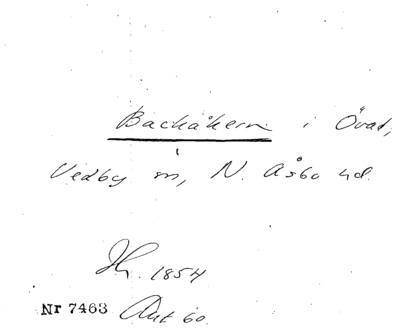 Backåkern i Övat,
Vedby sn, N. Åsbo hd.
Jh. 1854
Nr 7463 Akt 60.